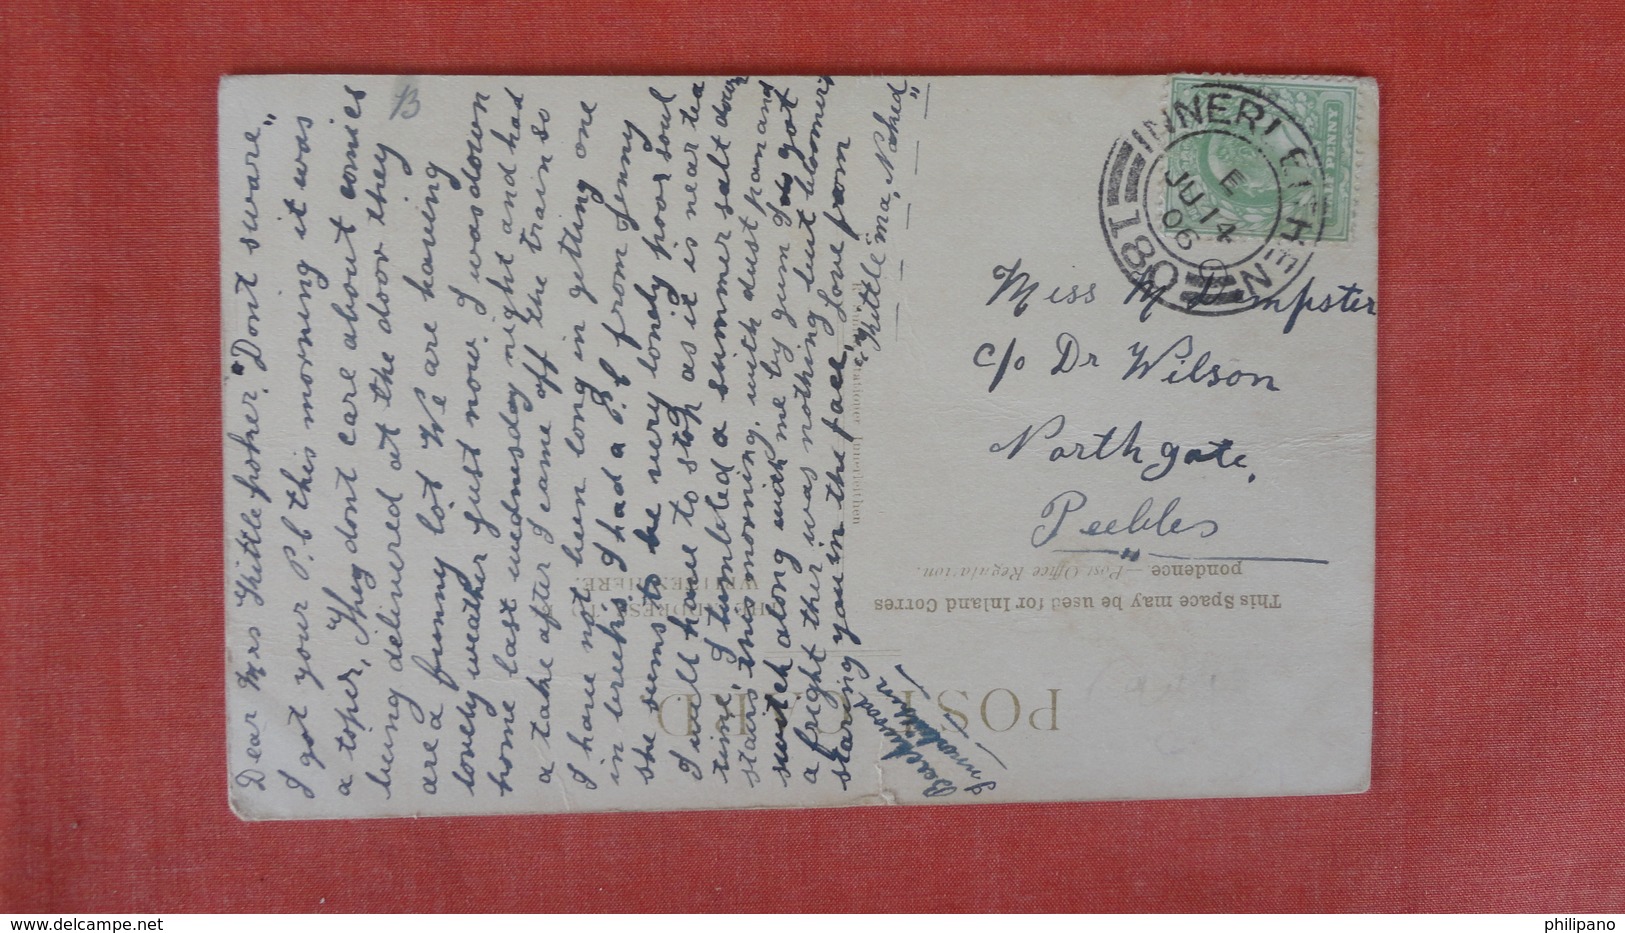 Dear Mrs Skittlepoker. "Dont sware"
I got your P.C this morning it was
a toper, They dont care about comics
being delivered at the door they
are a funny lot. We are having
lovely weather just now. I was down
home last wednesday night and had
a take after I came off the train so
I have not been long in getting one
in breeks. I had a P.C from Jenny
she seems to be very lonely poor soul
I will have to stop as it is near tea
time. I tumbled a summer salt down
stairs this morning, with dust pan and
switch along with me by gum I got
a fright ther was nothing but bloomers
staring you in the face, Love from
Skittlema, Naked"
Beechwood
Innerleithen
B
Miss M Dempster
c/o Dr Wilson
Northgate,
Peebles
INNERLEITHEN
E
JU 14
06
081
PENNY
POST CARD
This Space may be used for Inland Corres
pondence.—Post Office Regulation.
THE ADDRESS TO BE
WRITTEN HERE.
Stationer Innerleithen
philipano